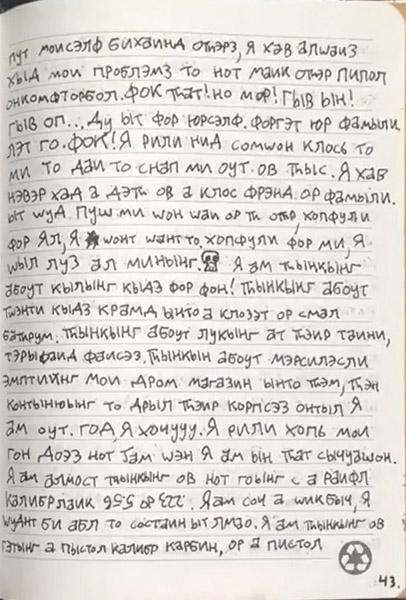 пут моисэлф бихаинд отһэрз, я хэв алшаиз
хыд мои проблэмз то нот маик отһэр пипол
онкомфторбол. фок тһат! но мор! гыв ын!
гыв оп... ду ыт фор юрсэлф. форгэт юр фамыли
лэт го. фок! я рили нид сомшон клось то
ми то даи то снап ми оут. ов тһыс. я хав
нэвэр хад а дэтһ ов а клос фрэнд. ор фамыли.
ыт шуд. пуш ми шон шаи ор тһ отһр, хопфули
фор ял, я шонт шант то. хопфули фор ми, я
шыл луз ал миндынг. я ам тһынкынг
абоут кылынг кыдз фор фон! тһынкынг абоут
тшэнти кыдз крамд ынто а клозэт ор смал
батһрум. тһынкынг абоут лукынг ат тһэир таини,
тэрыфаид фаисэз. тһынкын абоут мэрсилэсли
эмптийнг мои дром магазин ынто тһэм, тһэн
контынюынг то дрыл тһэир корпсэз онтыл я
ам оут. год, я хочууу. я рили хопь мои
гон доэз нот джам шэн я ам ын тһат сычуашон.
я ам алмост тһынкынг ов нот гоынг с а раифл
калибр лаик .223 ор 5.56. я ам соч а шикбыч, я
шуднт би абл то состаин ыт лмао. я ам тһынкынг ов
гэтынг а пыстол калибр карбин, ор а пистол
43.